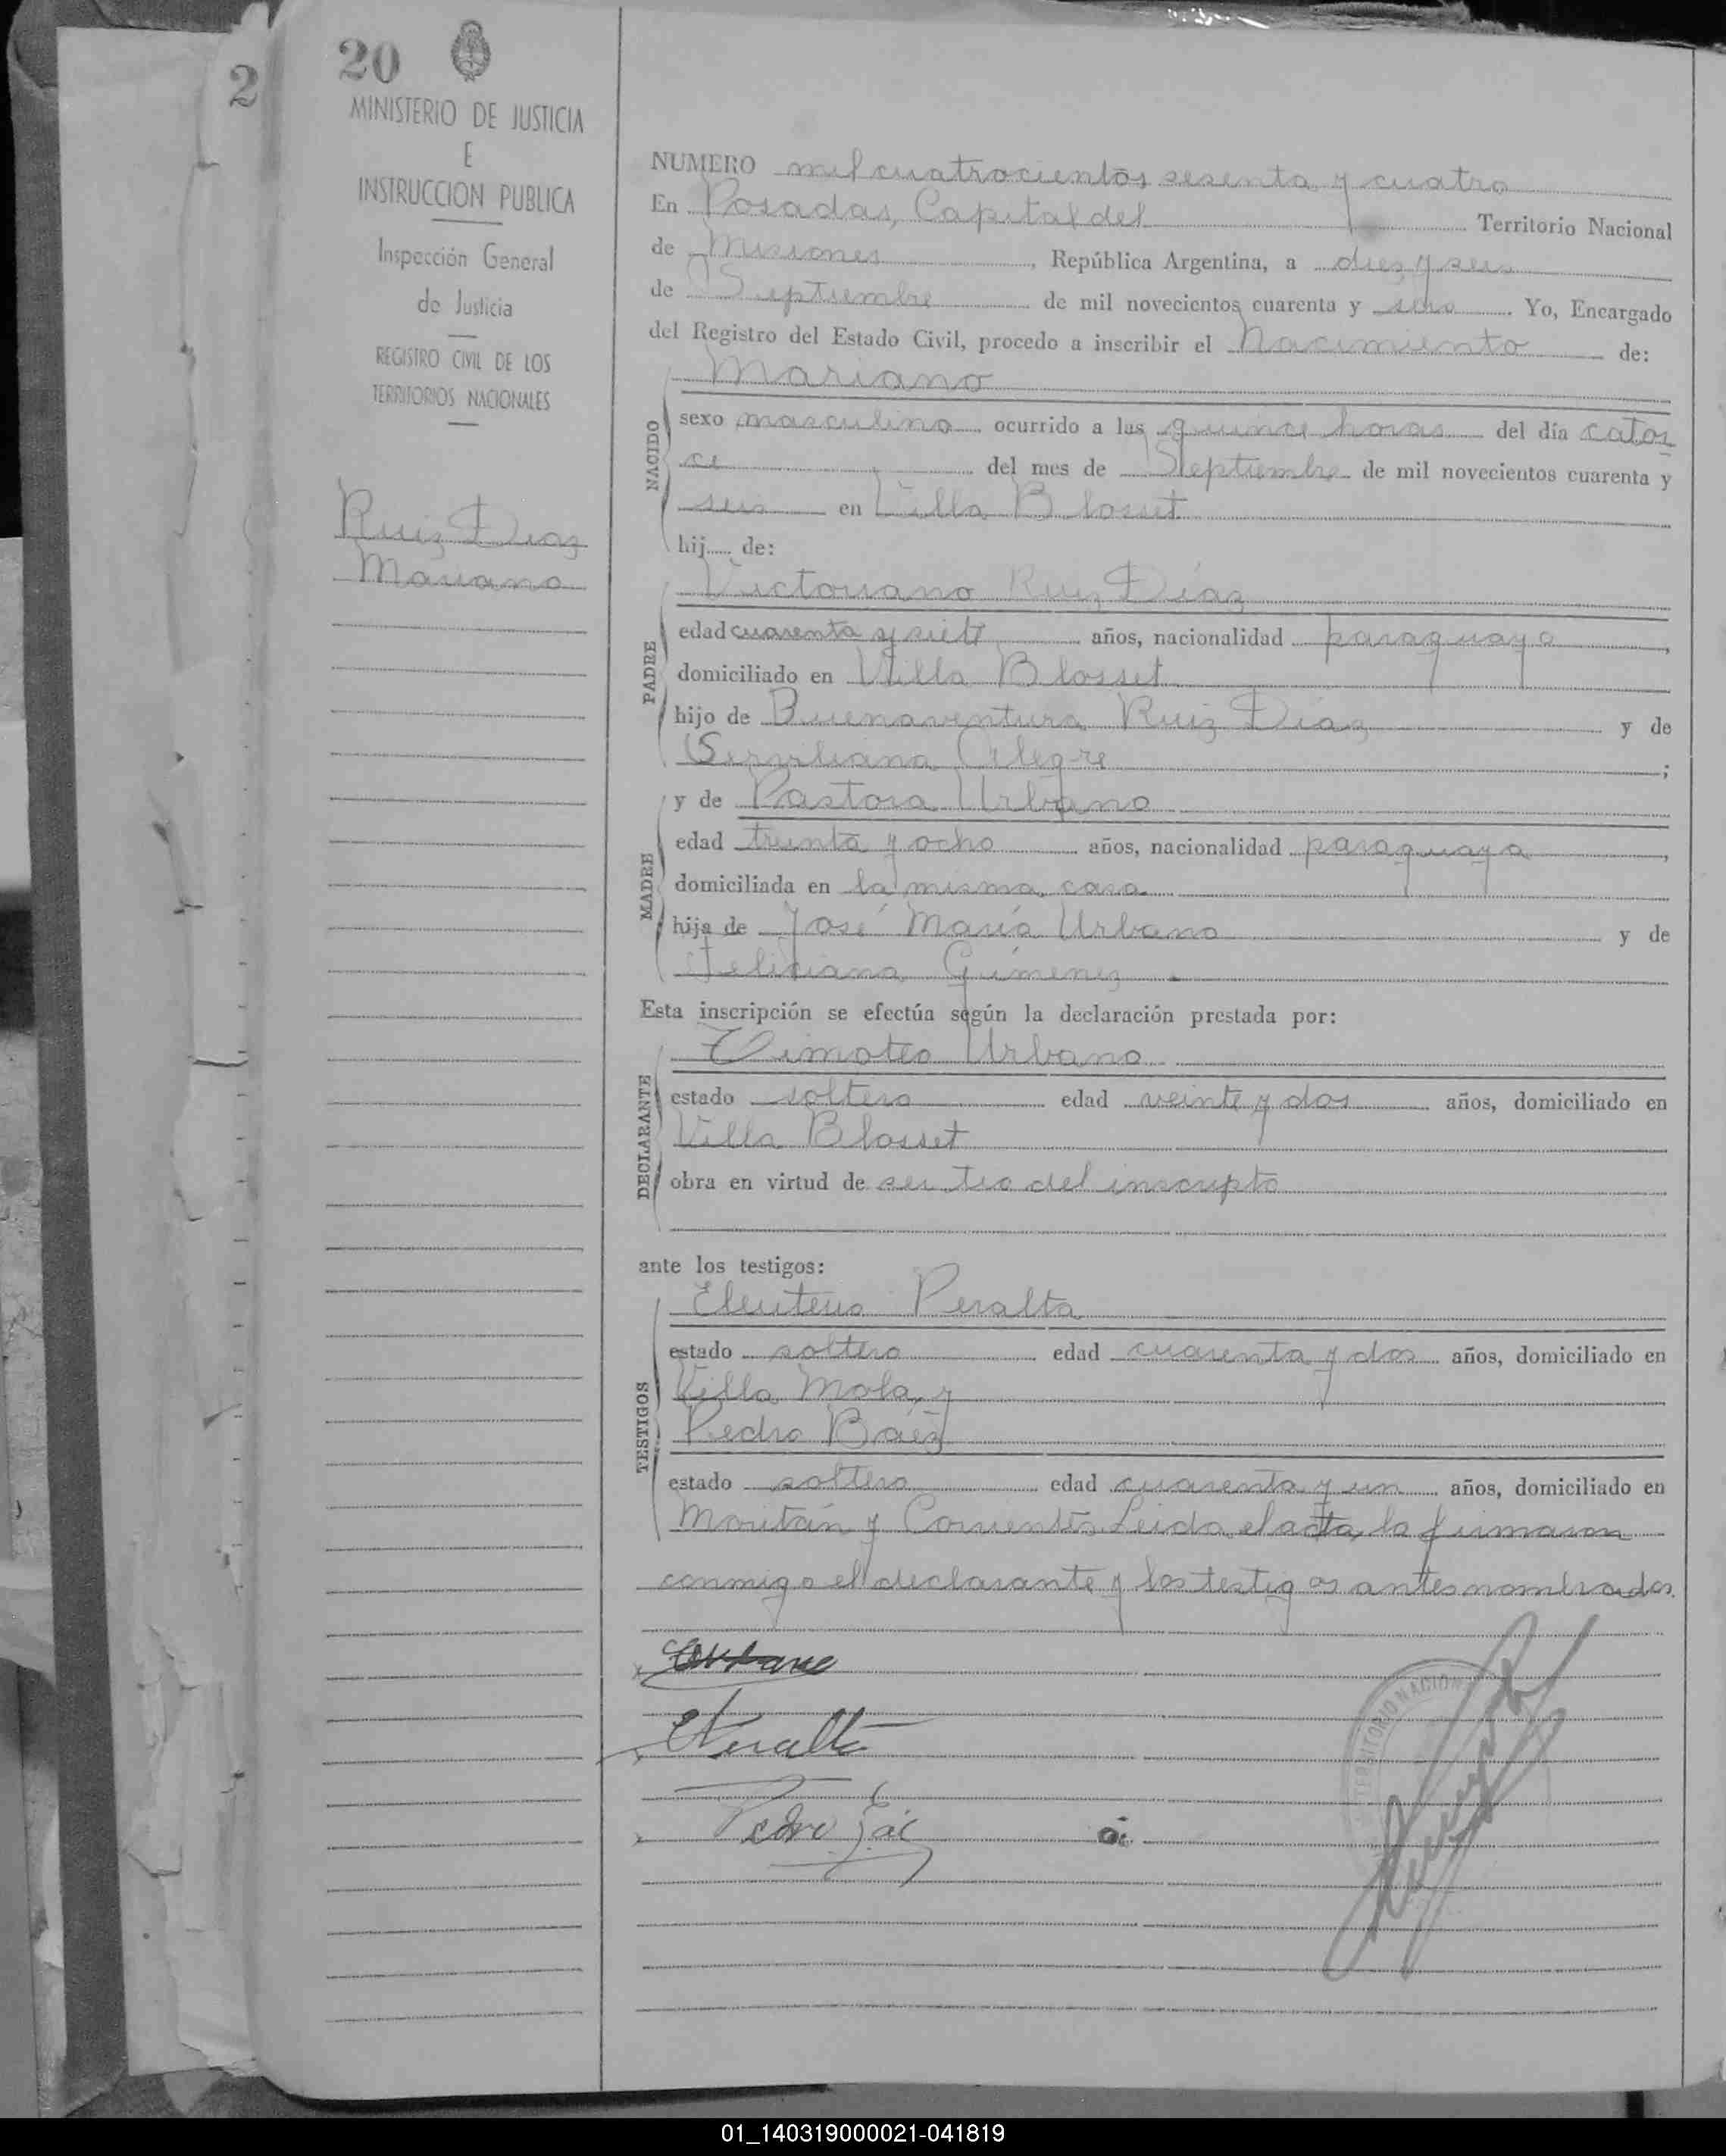 20
2
MINISTERIO DE JUSTICIA
E
INSTRUCCION PUBLICA
Inspección General
de Justicia
REGISTRO CIVIL DE LOS
TERRITORIOS NACIONALES
Ruiz Diaz
Mariano
NUMERO mil cuatrocientos sesenta y cuatro
En Posadas, Capital del Territorio Nacional
de Misiones, República Argentina, a diez y seis
de Septiembre de mil novecientos cuarenta y seis. Yo, Encargado
del Registro del Estado Civil, procedo a inscribir el Nacimiento de:
Mariano
NACIDO
sexo masculino ocurrido a las quince horas del día cator
ce del mes de Septiembre de mil novecientos cuarenta y
seis en Villa Blosset
hij..... de:
Victoriano Ruiz Díaz
PADRE
edad cuarenta y siete años, nacionalidad paraguaya,
domiciliado en Villa Blosset
hijo de Buenaventura Ruiz Díaz y de
Serviliana Alegre;
y de Pastora Urbano
MADRE
edad treinta y ocho años, nacionalidad paraguaya,
domiciliada en la misma casa
hija de José María Urbano y de
Feliciana Gimenez.
Esta inscripción se efectúa según la declaración prestada por:
Timoteo Urbano
DECLARANTE
estado soltero edad veinte y dos años, domiciliado en
Villa Blosset
obra en virtud de ser tio del inscripto
ante los testigos:
Eleuterio Peralta
TESTIGOS
estado soltero edad cuarenta y dos años, domiciliado en
Villa Mola, y
Pedro Báez
estado soltero edad cuarenta y un años, domiciliado en
Moritán y Corrientes. Leida el acta, la firmaron
conmigo el declarante y los testigos antes nombrados.
EPeralta
Pedro
TERRITORIO NACION
01_140319000021-041819